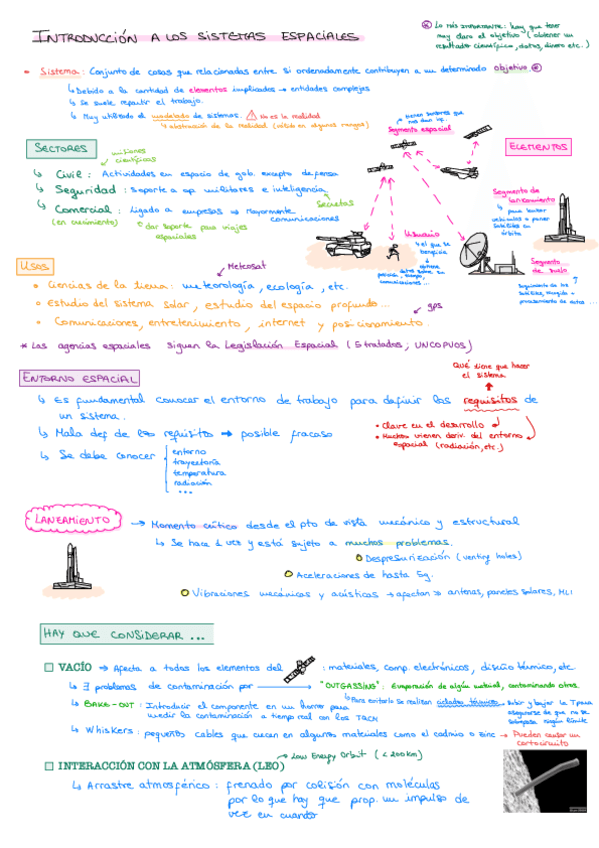 INTRODUCCIÓN A LOS SISTEMAS ESPACIALES
⊛ Lo más IMPORTANTE: hay que tener
muy claro el objetivo (obtener un
resultado científico, datos, dinero etc.)
Sistema: Conjunto de cosas que relacionadas entre si ordenadamente contribuyen a un determinado objetivo ⊛
↳ Debido a la cantidad de elementos implicados → entidades complejas
↳ Se suele repartir el trabajo.
↳ Muy utilizado el modelado de sistemas. ⚠ No es la realidad
↳ abstracción de la realidad (válido en algunos rangos)
tienen sensores que
nos dan inf.
Segmento espacial
SECTORES
misiones
científicas
ELEMENTOS
↳ Civil: Actividades en espacio de gob. excepto defensa
↳ Seguridad: soporte a op. militares e inteligencia
secretas
↳ Comercial: Ligado a empresas → Mayormente
comunicaciones
(en crecimiento)
dar soporte para viajes
espaciales
Segmento de
lanzamiento
↳ para lanzar
vehículos o poner
satélites en
órbita
Usuario
↳ el que se
beneficia
↳ obtiene
datos sobre su
posición, tiempo,
comunicaciones ...
Segmento
de suelo
Seguimiento de los
satélites, recogida +
procesamiento de datos ...
USOS
Meteosat
Ciencias de la tierra: meteorología, ecología, etc.
Estudio del sistema solar, estudio del espacio profundo...
gps
Comunicaciones, entretenimiento, internet y posicionamiento.
* Las agencias espaciales siguen la Legislación Espacial (5 tratados; UNCOPUOS)
QUÉ tiene que hacer
el sistema
ENTORNO ESPACIAL
↳ Es fundamental conocer el entorno de trabajo para definir los requisitos de
un sistema.
• Clave en el desarrollo
• Muchos vienen deriv. del entorno
espacial (radiación, etc.)
↳ Mala def de los requisitos → posible fracaso
↳ Se debe conocer
entorno
trayectoria
temperatura
radiación
...
LANZAMIENTO
→ Momento crítico desde el pto de vista mecánico y estructural
↳ Se hace 1 vez y está sujeto a muchos problemas.
Despresurización (venting holes)
Aceleraciones de hasta 5g.
Vibraciones mecánicas y acústicas → afectan → antenas, paneles solares, MLI
HAY QUE CONSIDERAR ...
VACÍO → Afecta a todos los elementos del : materiales, comp. electrónicos, diseño térmico, etc
↳ ∃ problemas de contaminación por → "OUTGASSING": Evaporación de algún material, contaminando otros
↳ BAKE-OUT: Introducir el componente en un horno para
medir la contaminación a tiempo real con los TQCM
↳ Para evitarlo se realizan ciclados térmicos → subir y bajar la T para
asegurarse de que no se
sobrepasa ningún límite
↳ Whiskers: pequeños cables que crecen en algunos materiales como el cadmio o zinc → Pueden causar un
cortocircuito
INTERACCIÓN CON LA ATMÓSFERA (LEO)
→ Low Energy Orbit (<200km)
↳ Arrastre atmosférico: frenado por colisión con moléculas
por lo que hay que prop. un impulso de
vez en cuando